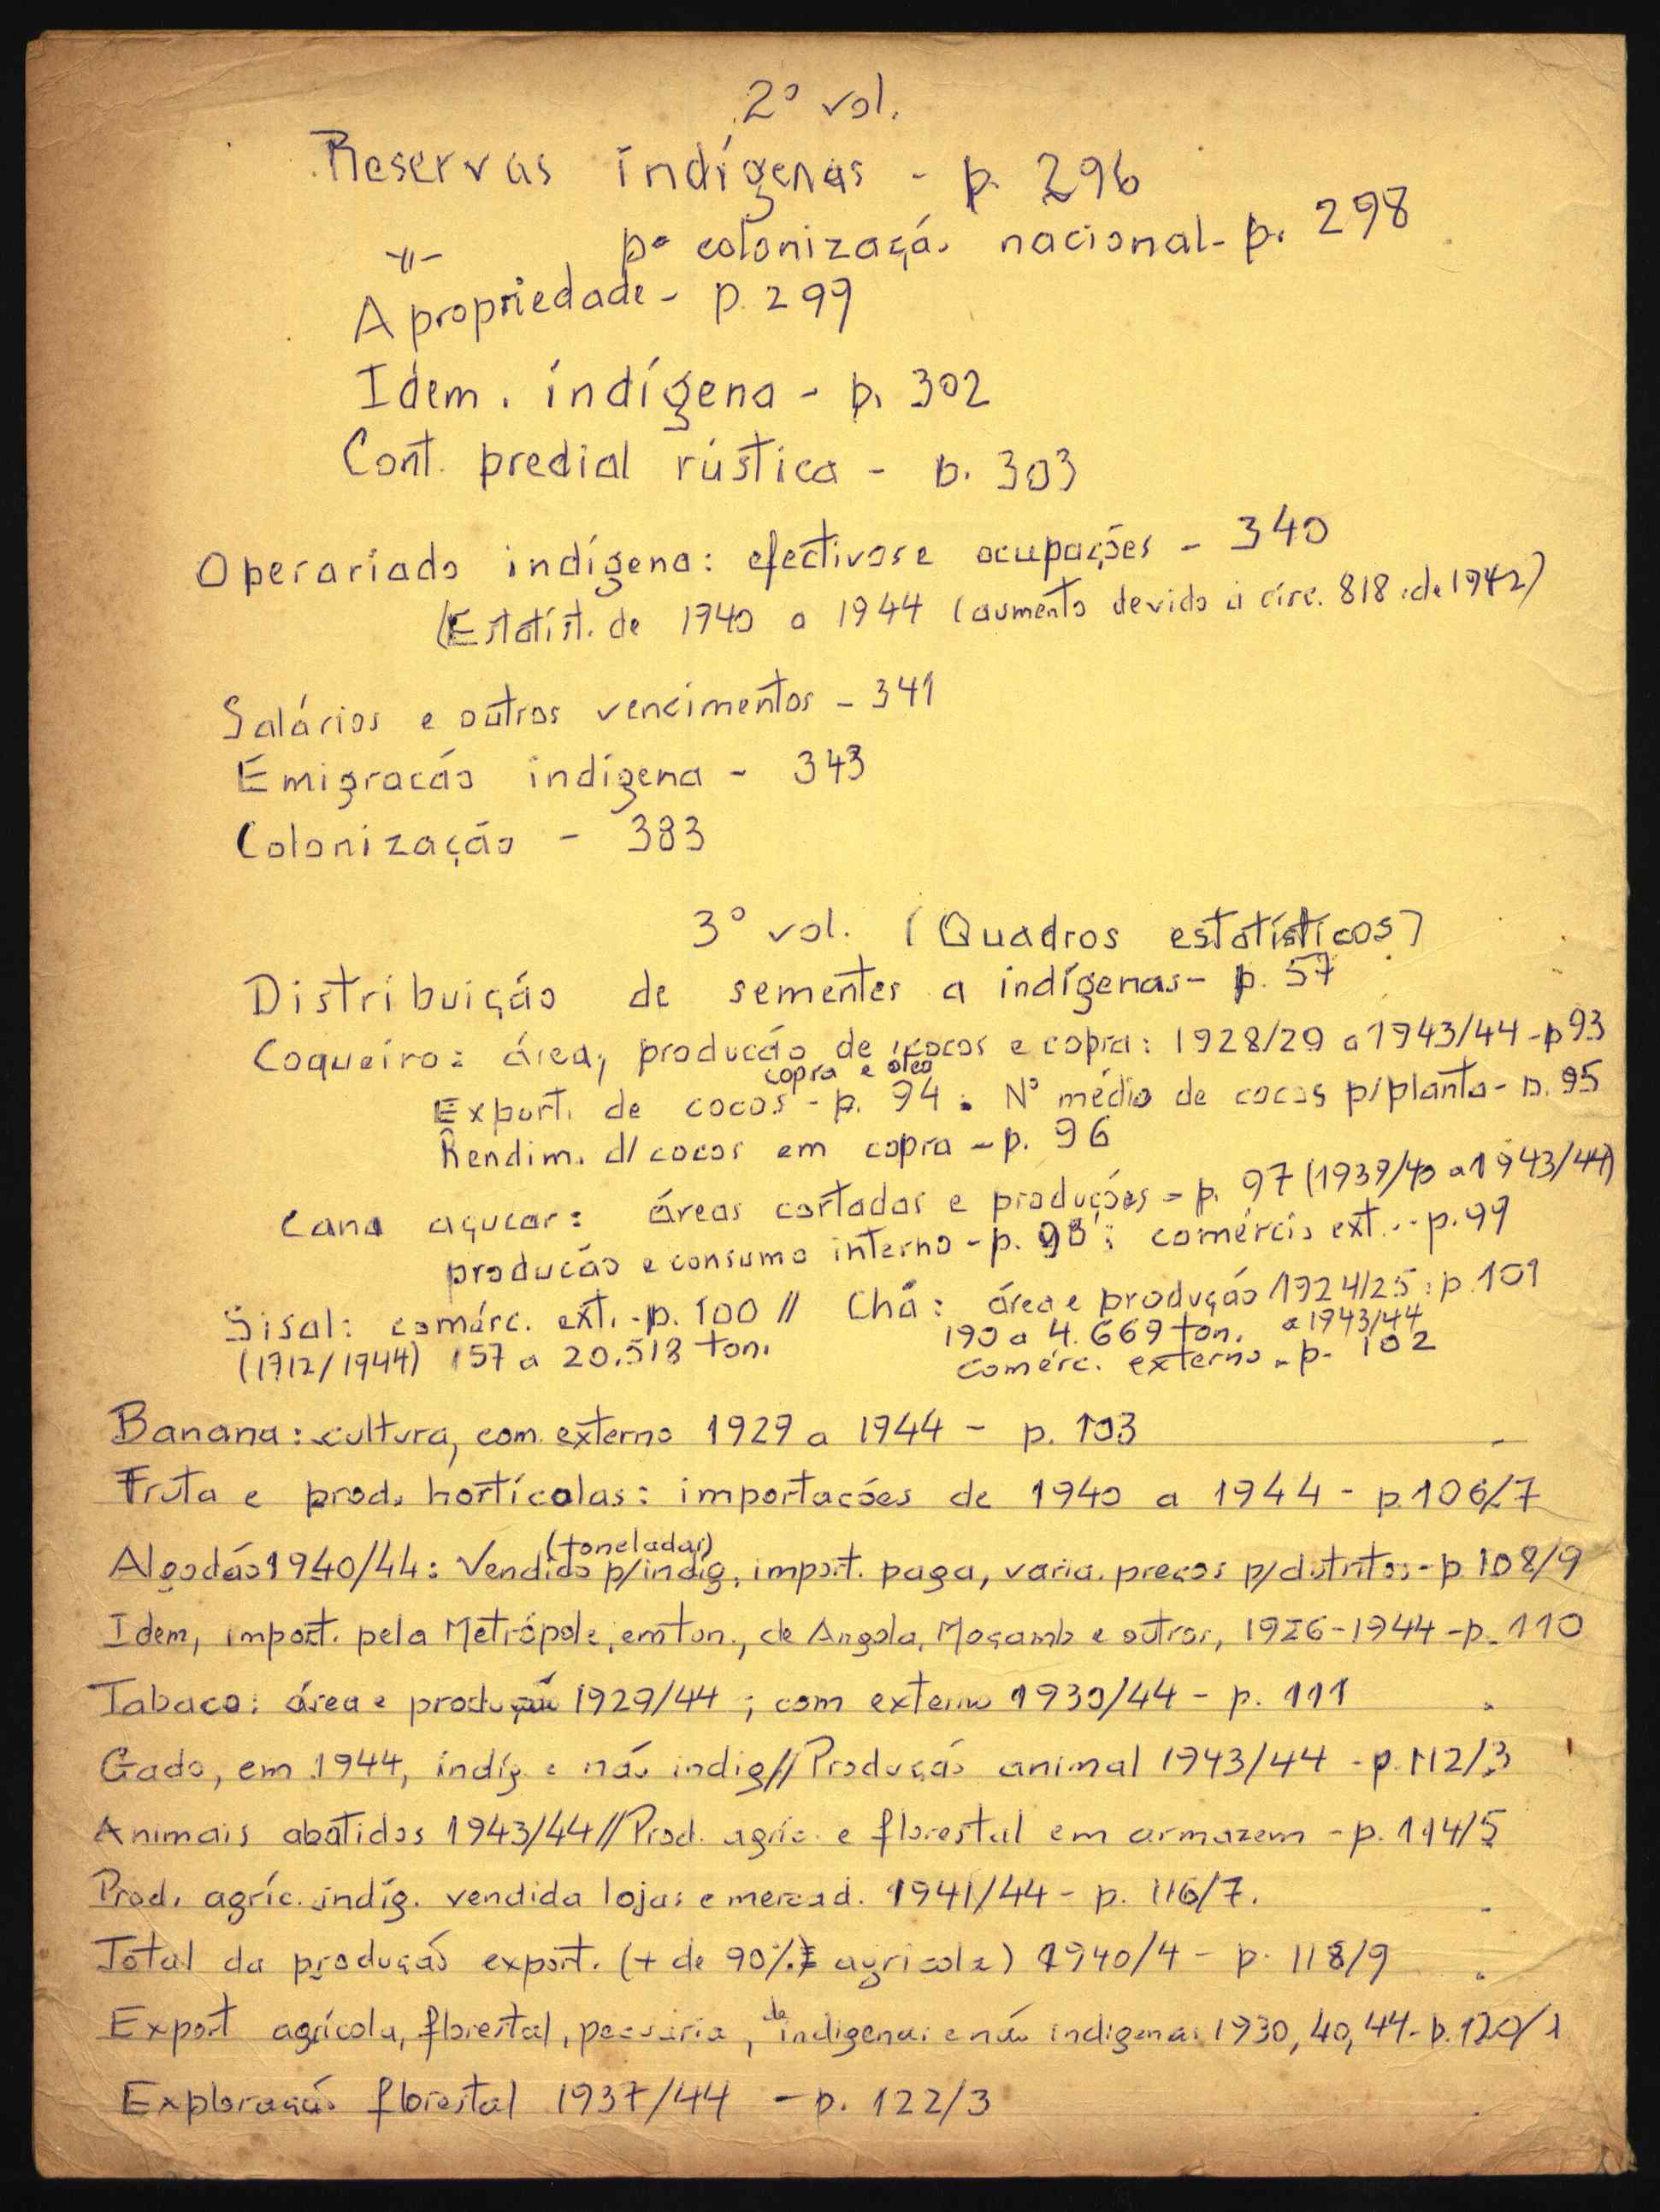 2º vol.
Reservas indígenas - p. 296
-"- pª colonização nacional - p. 298
A propriedade - p. 299
Idem. indígena - p. 302
Cont. predial rústica - p. 303
Operariado indígena: efectivos e ocupações - 340
(Estatíst. de 1940 a 1944 (aumento devido à circ. 818 de 1942)
Salários e outros vencimentos - 341
Emigracão indígena - 343
Colonização - 383
3º vol. (Quadros estatísticos)
Distribuição de sementes a indígenas - p. 57
Coqueiro: área, producão de cocos e copra: 1928/29 a 1943/44 - p 93
copra e óleo
Export. de cocos - p. 94. Nº médio de cocos p/planta - p. 95
Rendim. d/ cocos em copra - p. 96
Cana açucar: áreas cortadas e produções - p. 97 (1939/40 a 1943/44)
producão e consumo interno - p. 98; comércio ext. - p. 99
Sisal: comérc. ext. - p. 100 // Chá: área e produção 1924/25: p. 101
a 1943/44
(1912/1944) 157 a 20.518 ton. 190 a 4.669 ton.
comérc. externo - p. 102
Banana: cultura, com. externo 1929 a 1944 - p. 103
Fruta e prod. hortícolas: importacões de 1940 a 1944 - p. 106/7
(toneladas)
Algodão 1940/44: Vendido p/indíg, import. paga, varia. precos p/distritos - p. 108/9
Idem, import. pela Metrópole, em ton., de Angola, Moçamb e outros, 1926-1944 - p. 110
Tabaco: área e produção 1929/44; com externo 1930/44 - p. 111
Gado, em 1944, indíg e não indig // Produção animal 1943/44 - p. 112/3
Animais abatidos 1943/44 // Prod. agríc. e florestal em armazem - p. 114/5
Prod. agríc. indíg. vendida lojas e mercad. 1941/44 - p. 116/7.
Total da produção export. (+ de 90% agricola) 1940/4 - p. 118/9
de
Export agrícola, florestal, pecuária, indigenas e não indigenas 1930, 40, 44 - p. 120/1
Exploração florestal 1937/44 - p. 122/3